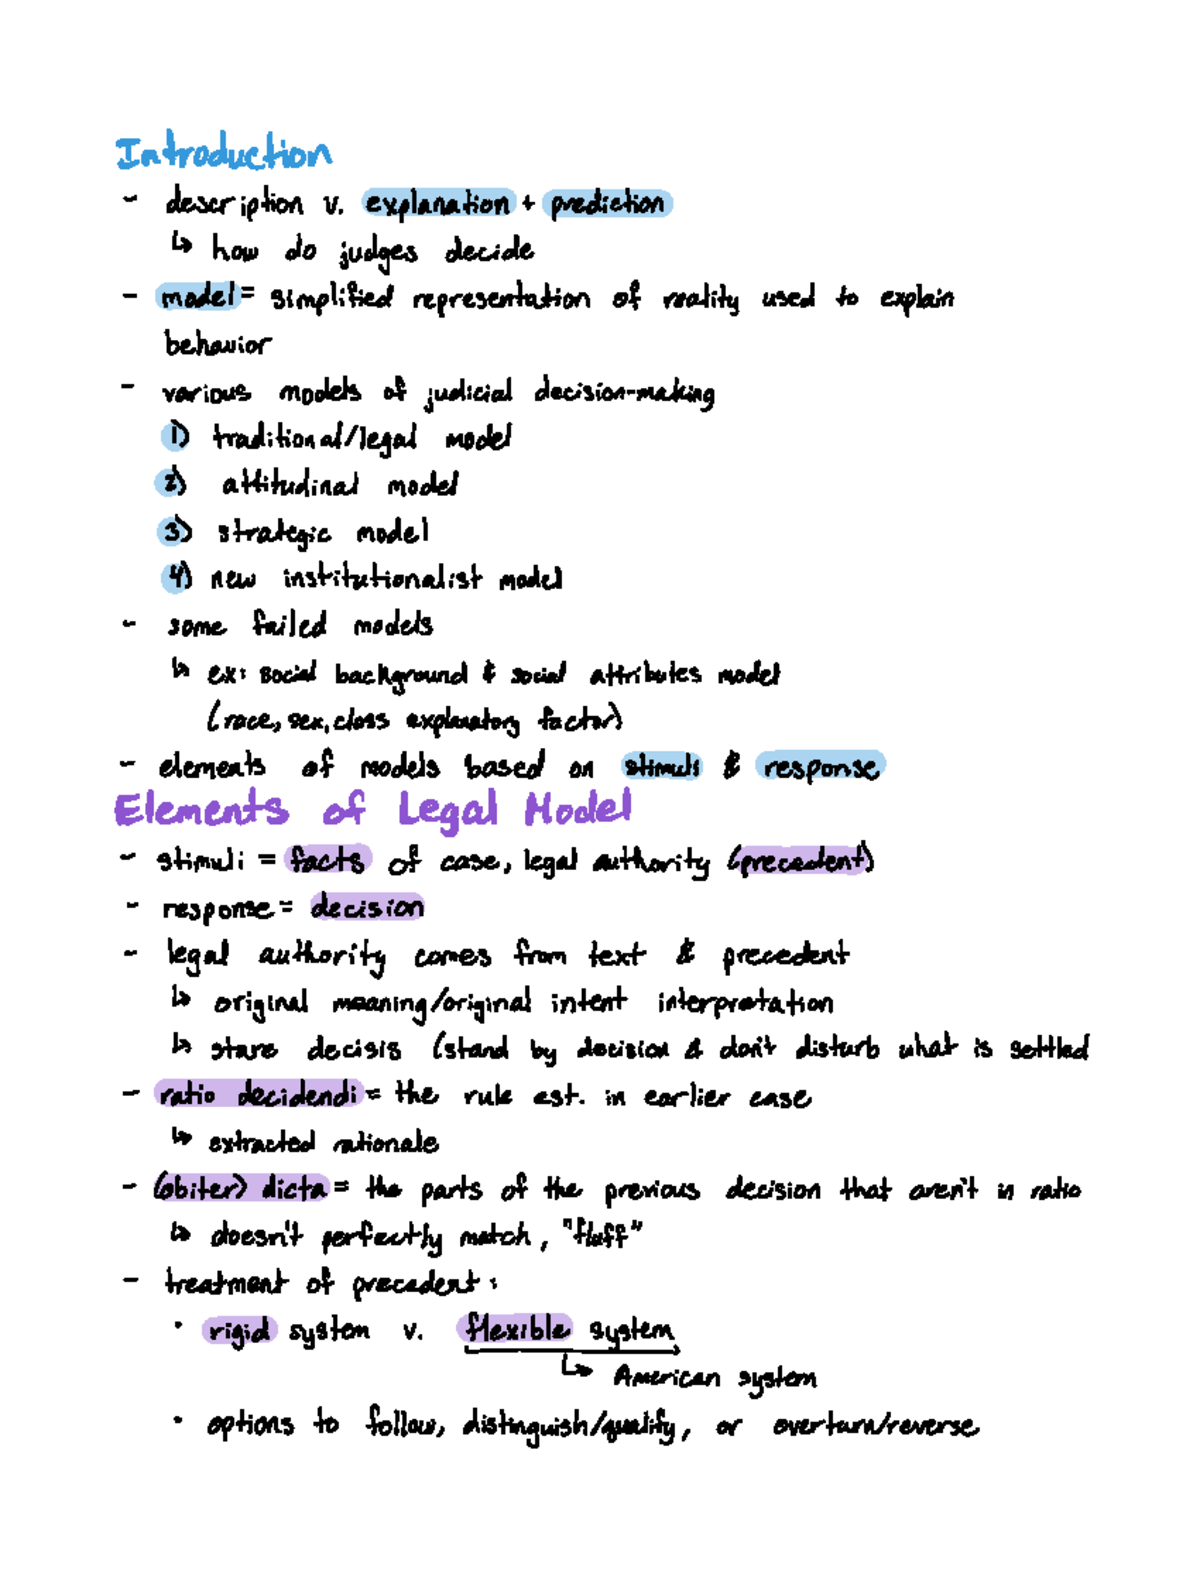 Introduction
- description v. explanation + prediction
↳ how do judges decide
- model = simplified representation of reality used to explain
behavior
- various models of judicial decision-making
1) traditional/legal model
2) attitudinal model
3) strategic model
4) new institutionalist model
- some failed models
↳ ex: social background & social attributes model
(race, sex, class explanatory factor)
- elements of models based on stimuli & response
Elements of Legal Model
- stimuli = facts of case, legal authority (precedent)
- response = decision
- legal authority comes from text & precedent
↳ original meaning/original intent interpretation
↳ stare decisis (stand by decision & don't disturb what is settled
- ratio decidendi = the rule est. in earlier case
↳ extracted rationale
- (obiter) dicta = the parts of the previous decision that aren't in ratio
↳ doesn't perfectly match, "fluff"
- treatment of precedent:
• rigid system v. flexible system
↳ American system
• options to follow, distinguish/qualify, or overturn/reverse